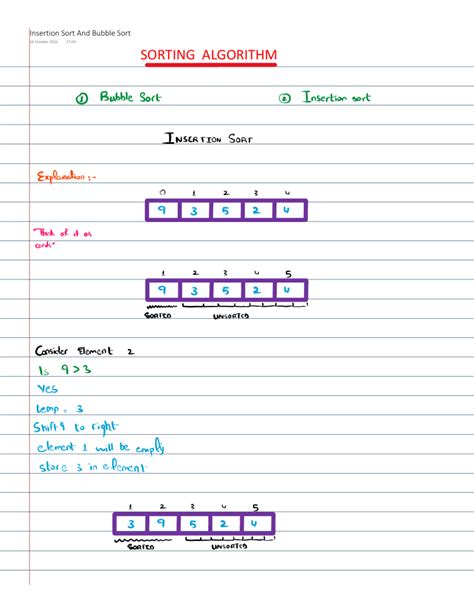 Insertion Sort And Bubble Sort
26 October 2022 17:09
SORTING ALGORITHM
① Bubble Sort ② Insertion sort
INSERTION SORT
Explanation :-
0 1 2 3 4
9 3 5 2 4
Think of it as
cards
1 2 3 4 5
9 3 5 2 4
SORTED UNSORTED
Consider Element 2
Is 9 > 3
Yes
temp = 3
Shift 9 to right
element 1 will be empty
store 3 in element
1 2 3 4 5
3 9 5 2 4
SORTED UNSORTED